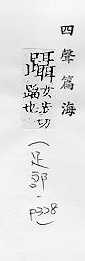 四聲篇海
女切
蹈也
(足部-P328)